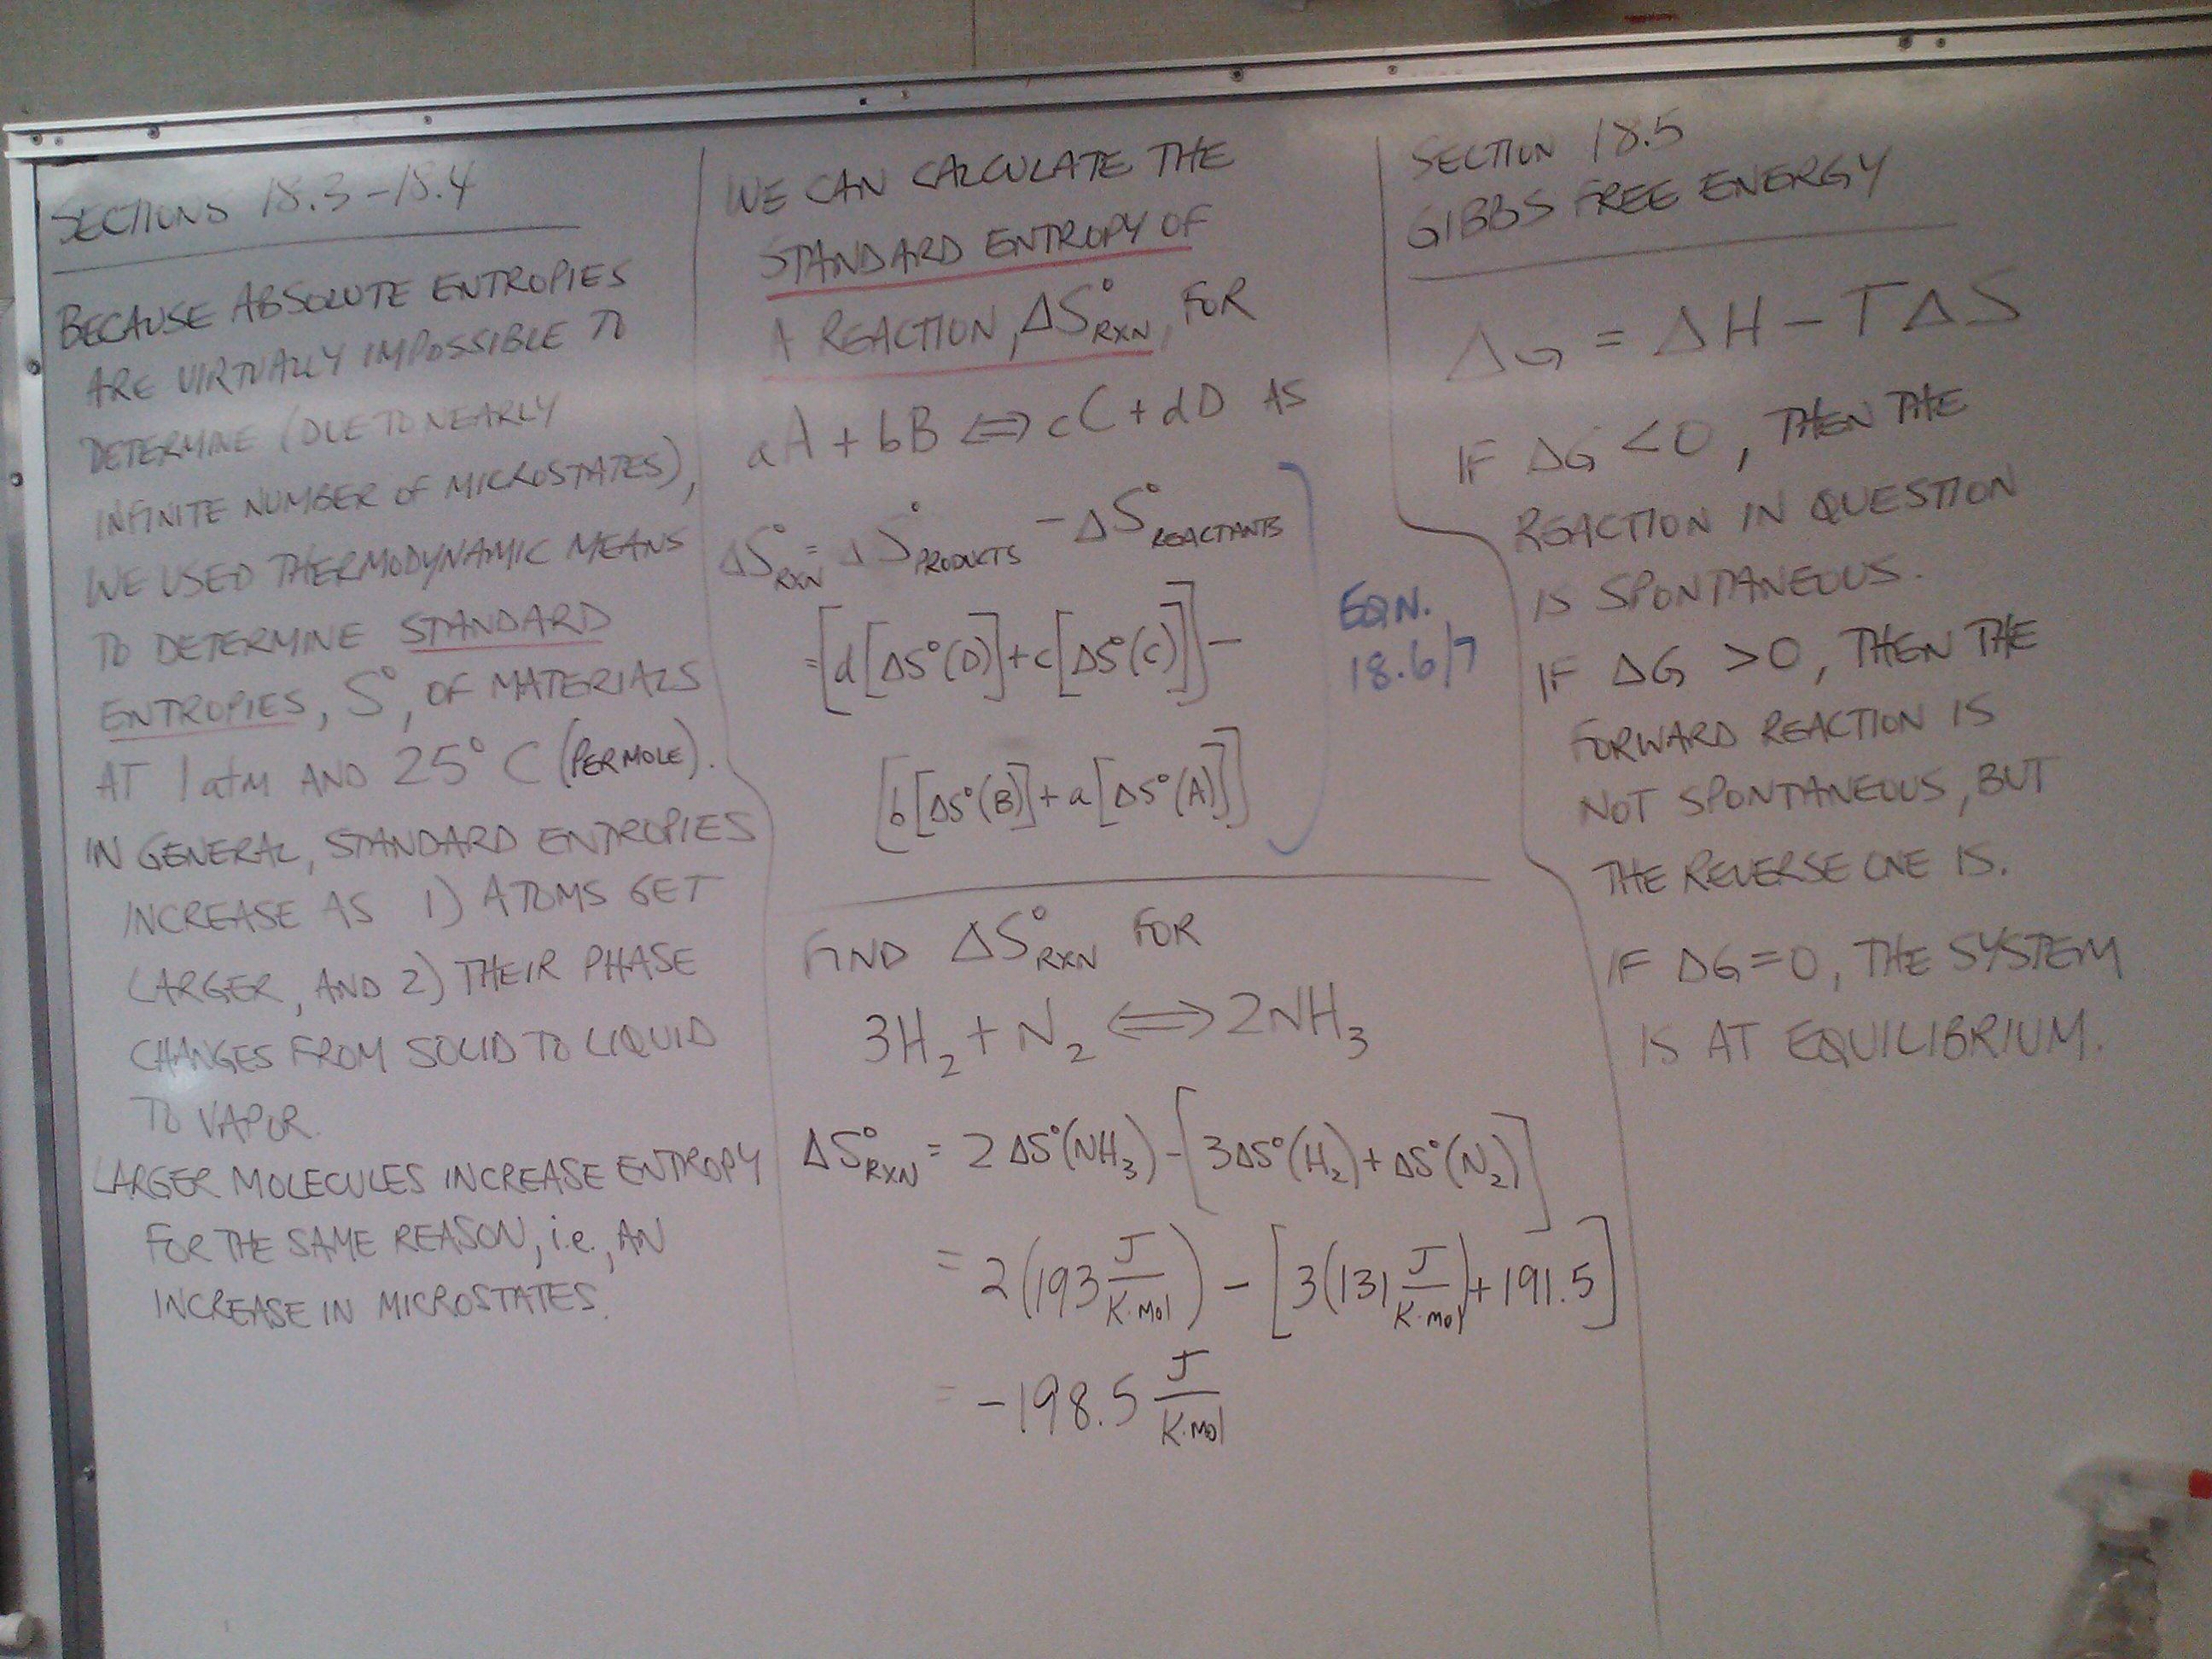 SECTIONS 18.3-18.4
BECAUSE ABSOLUTE ENTROPIES
ARE VIRTUALLY IMPOSSIBLE TO
DETERMINE (DUE TO NEARLY
INFINITE NUMBER OF MICROSTATES),
WE USED THERMODYNAMIC MEANS
TO DETERMINE STANDARD
ENTROPIES, S°, OF MATERIALS
AT 1 atm AND 25°C (PER MOLE).
IN GENERAL, STANDARD ENTROPIES
INCREASE AS 1) ATOMS GET
LARGER, AND 2) THEIR PHASE
CHANGES FROM SOLID TO LIQUID
TO VAPOR.
LARGER MOLECULES INCREASE ENTROPY
FOR THE SAME REASON, i.e., AN
INCREASE IN MICROSTATES.
WE CAN CALCULATE THE
STANDARD ENTROPY OF
A REACTION, ΔS°RXN, FOR
aA + bB ⇔ cC + dD AS
ΔS°RXN = ΔS°PRODUCTS - ΔS°REACTANTS
=[d[ΔS°(D)]+c[ΔS°(C)]]-
[b[ΔS°(B)]+a[ΔS°(A)]]
EQN.
18.6/7
FIND ΔS°RXN FOR
3H₂ + N₂ ⇔ 2NH₃
ΔS°RXN = 2ΔS°(NH₃)-[3ΔS°(H₂)+ΔS°(N₂)]
= 2(193 J/K·mol) - [3(131 J/K·mol)+191.5]
= -198.5 J/K·mol
SECTION 18.5
GIBBS FREE ENERGY
ΔG = ΔH - TΔS
IF ΔG <0, THEN THE
REACTION IN QUESTION
IS SPONTANEOUS.
IF ΔG >0, THEN THE
FORWARD REACTION IS
NOT SPONTANEOUS, BUT
THE REVERSE ONE IS.
IF ΔG=0, THE SYSTEM
IS AT EQUILIBRIUM.